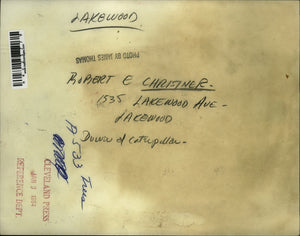 LAKEWOOD
PHOTO BY JAMES THOMAS
ROBERT E CHRISTNER.
1535 LAKEWOOD AVE-
LAKEWOOD
Down of caterpillar-
A 533 Trees
CLEVELAND PRESS
REFERENCE DEPT.